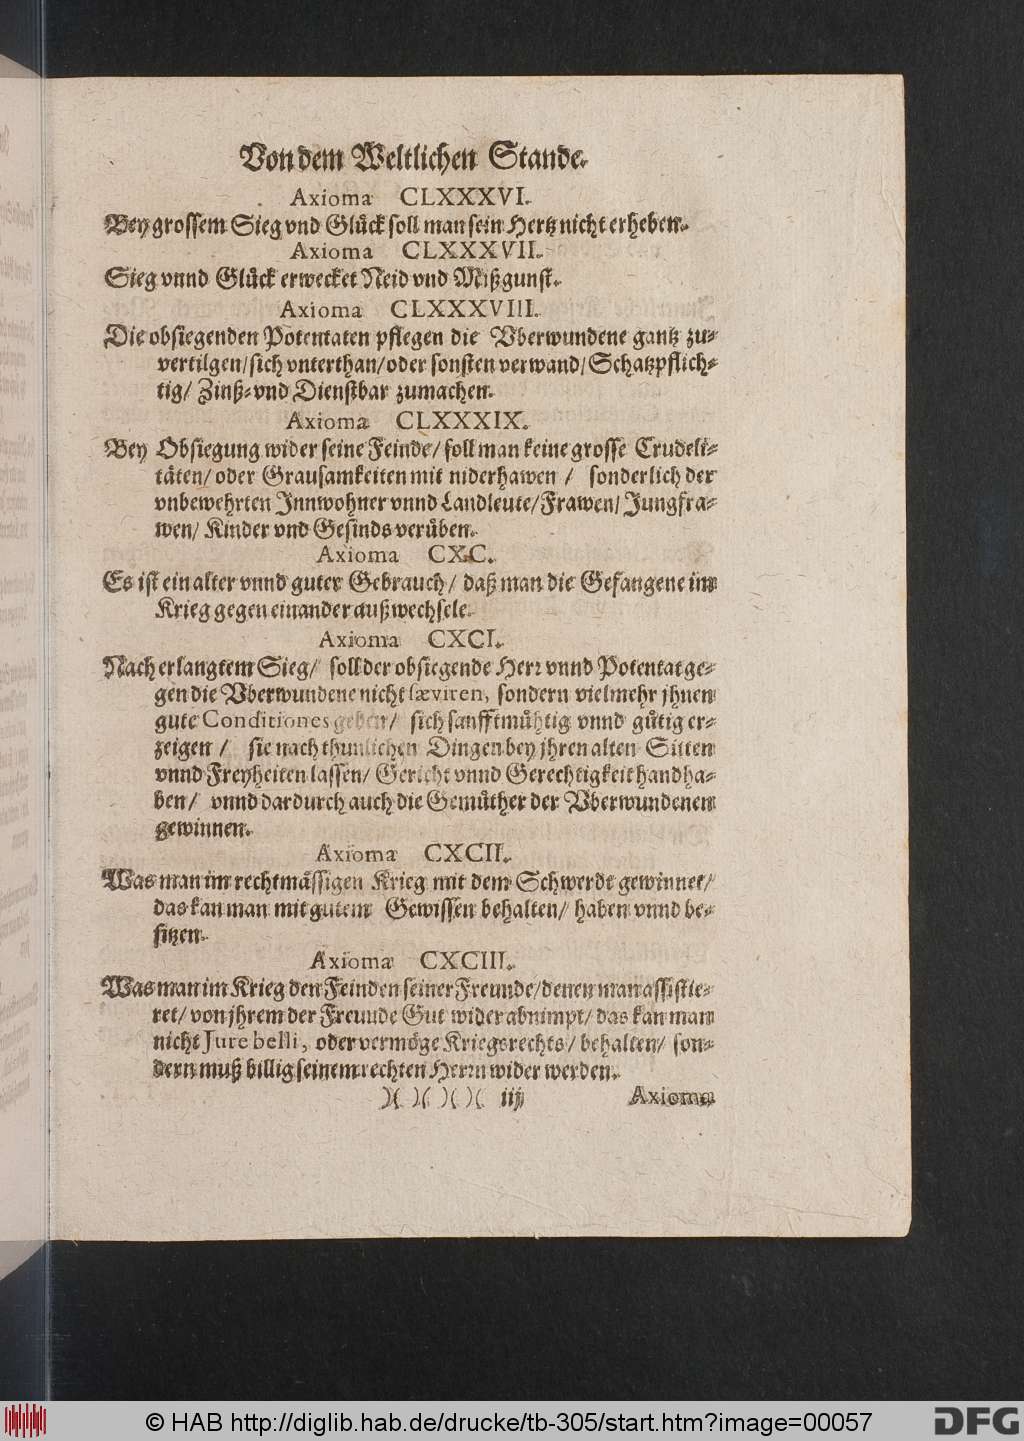 Von dem Weltlichen Stande.
Axioma CLXXXVI.
Bey grossem Sieg vnd Glück soll man sein Hertz nicht erheben.
Axioma CLXXXVII.
Sieg vnnd Glück erwecket Neid vnd Mißgunst.
Axioma CLXXXVIII.
Die obsiegenden Potentaten pflegen die Vberwundene gantz zu-
vertilgen/ sich vnterthan/ oder sonsten verwand/ Schatzpflich-
tig/ Zinß- vnd Dienstbar zumachen.
Axioma CLXXXIX.
Bey Obsiegung wider seine Feinde/ soll man keine grosse Crudeli-
täten/ oder Grausamkeiten mit niderhawen / sonderlich der
vnbewehrten Innwohner vnnd Landleute/ Frawen/ Jungfra-
wen/ Kinder vnd Gesinds verüben.
Axioma CXC.
Es ist ein alter vnnd guter Gebrauch/ daß man die Gefangene im
Krieg gegen einander außwechsele.
Axioma CXCI.
Nach erlangtem Sieg/ soll der obsiegende Herr vnnd Potentat ge-
gen die Vberwundene nicht sæviren, sondern vielmehr jhnen
gute Conditiones geben/ sich sanfftmühtig vnnd gütig er-
zeigen / sie nach thunlichen Dingen bey jhren alten Sitten
vnnd Freyheiten lassen/ Gericht vnnd Gerechtigkeit handha-
ben/ vnnd dardurch auch die Gemüther der Vberwundenen
gewinnen.
Axioma CXCII.
Was man im rechtmässigen Krieg mit dem Schwerdt gewinnet/
das kan man mit gutem Gewissen behalten/ haben vnnd be-
sitzen.
Axioma CXCIII.
Was man im Krieg den Feinden seiner Freunde/ denen man assistie-
ret/ von jhrem der Freunde Gut wider abnimpt/ das kan man
nicht Jure belli, oder vermöge Kriegsrechts/ behalten/ son-
dern muß billig seinem rechten Herrn wider werden.
)( )( )( )( iij Axioma
© HAB http://diglib.hab.de/drucke/tb-305/start.htm?image=00057
DFG